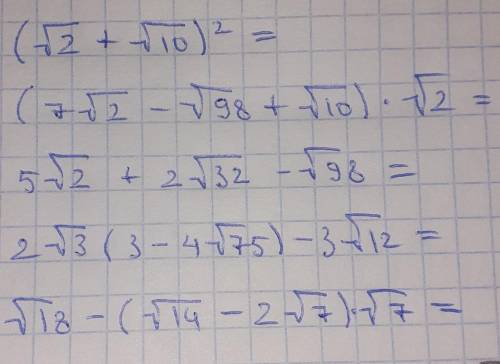 (√2 + √10)² =
(7√2 - √98 + √10) · √2 =
5√2 + 2√32 - √98 =
2√3 (3 - 4√75) - 3√12 =
√18 - (√14 - 2√7) · √7 =